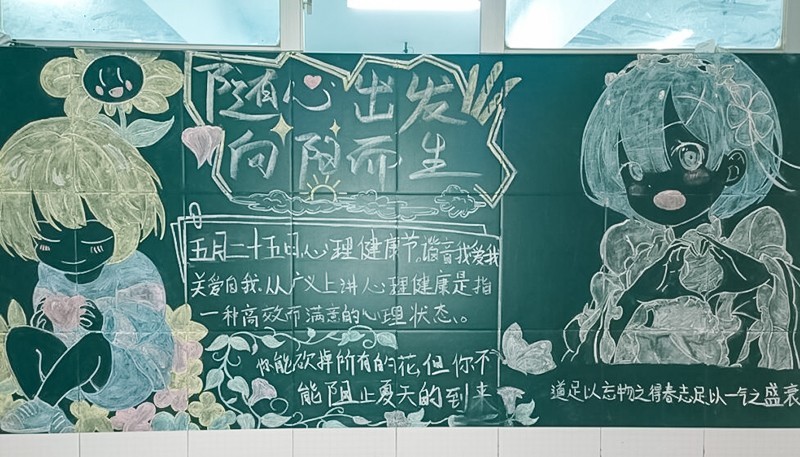 随心出发
向阳而生
五月二十五日心理健康节。谐音我爱我
关爱自我,从广义上讲心理健康是指
一种高效而满意的心理状态。
你能砍掉所有的花,但你不
能阻止夏天的到来
道足以忘物之得春志足以一气之盛衰